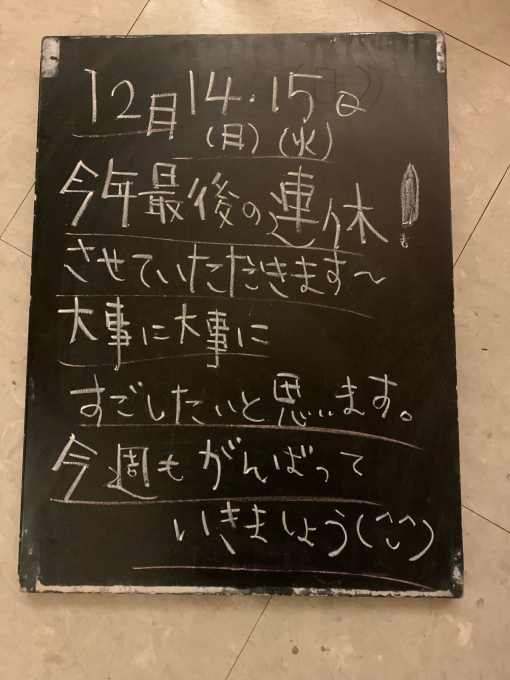 12月14・15日
(月) (火)
今年最後の連休!
させていただきます〜
大事に大事に
すごしたいと思います。
今週もがんばって
いきましょう(^-^)